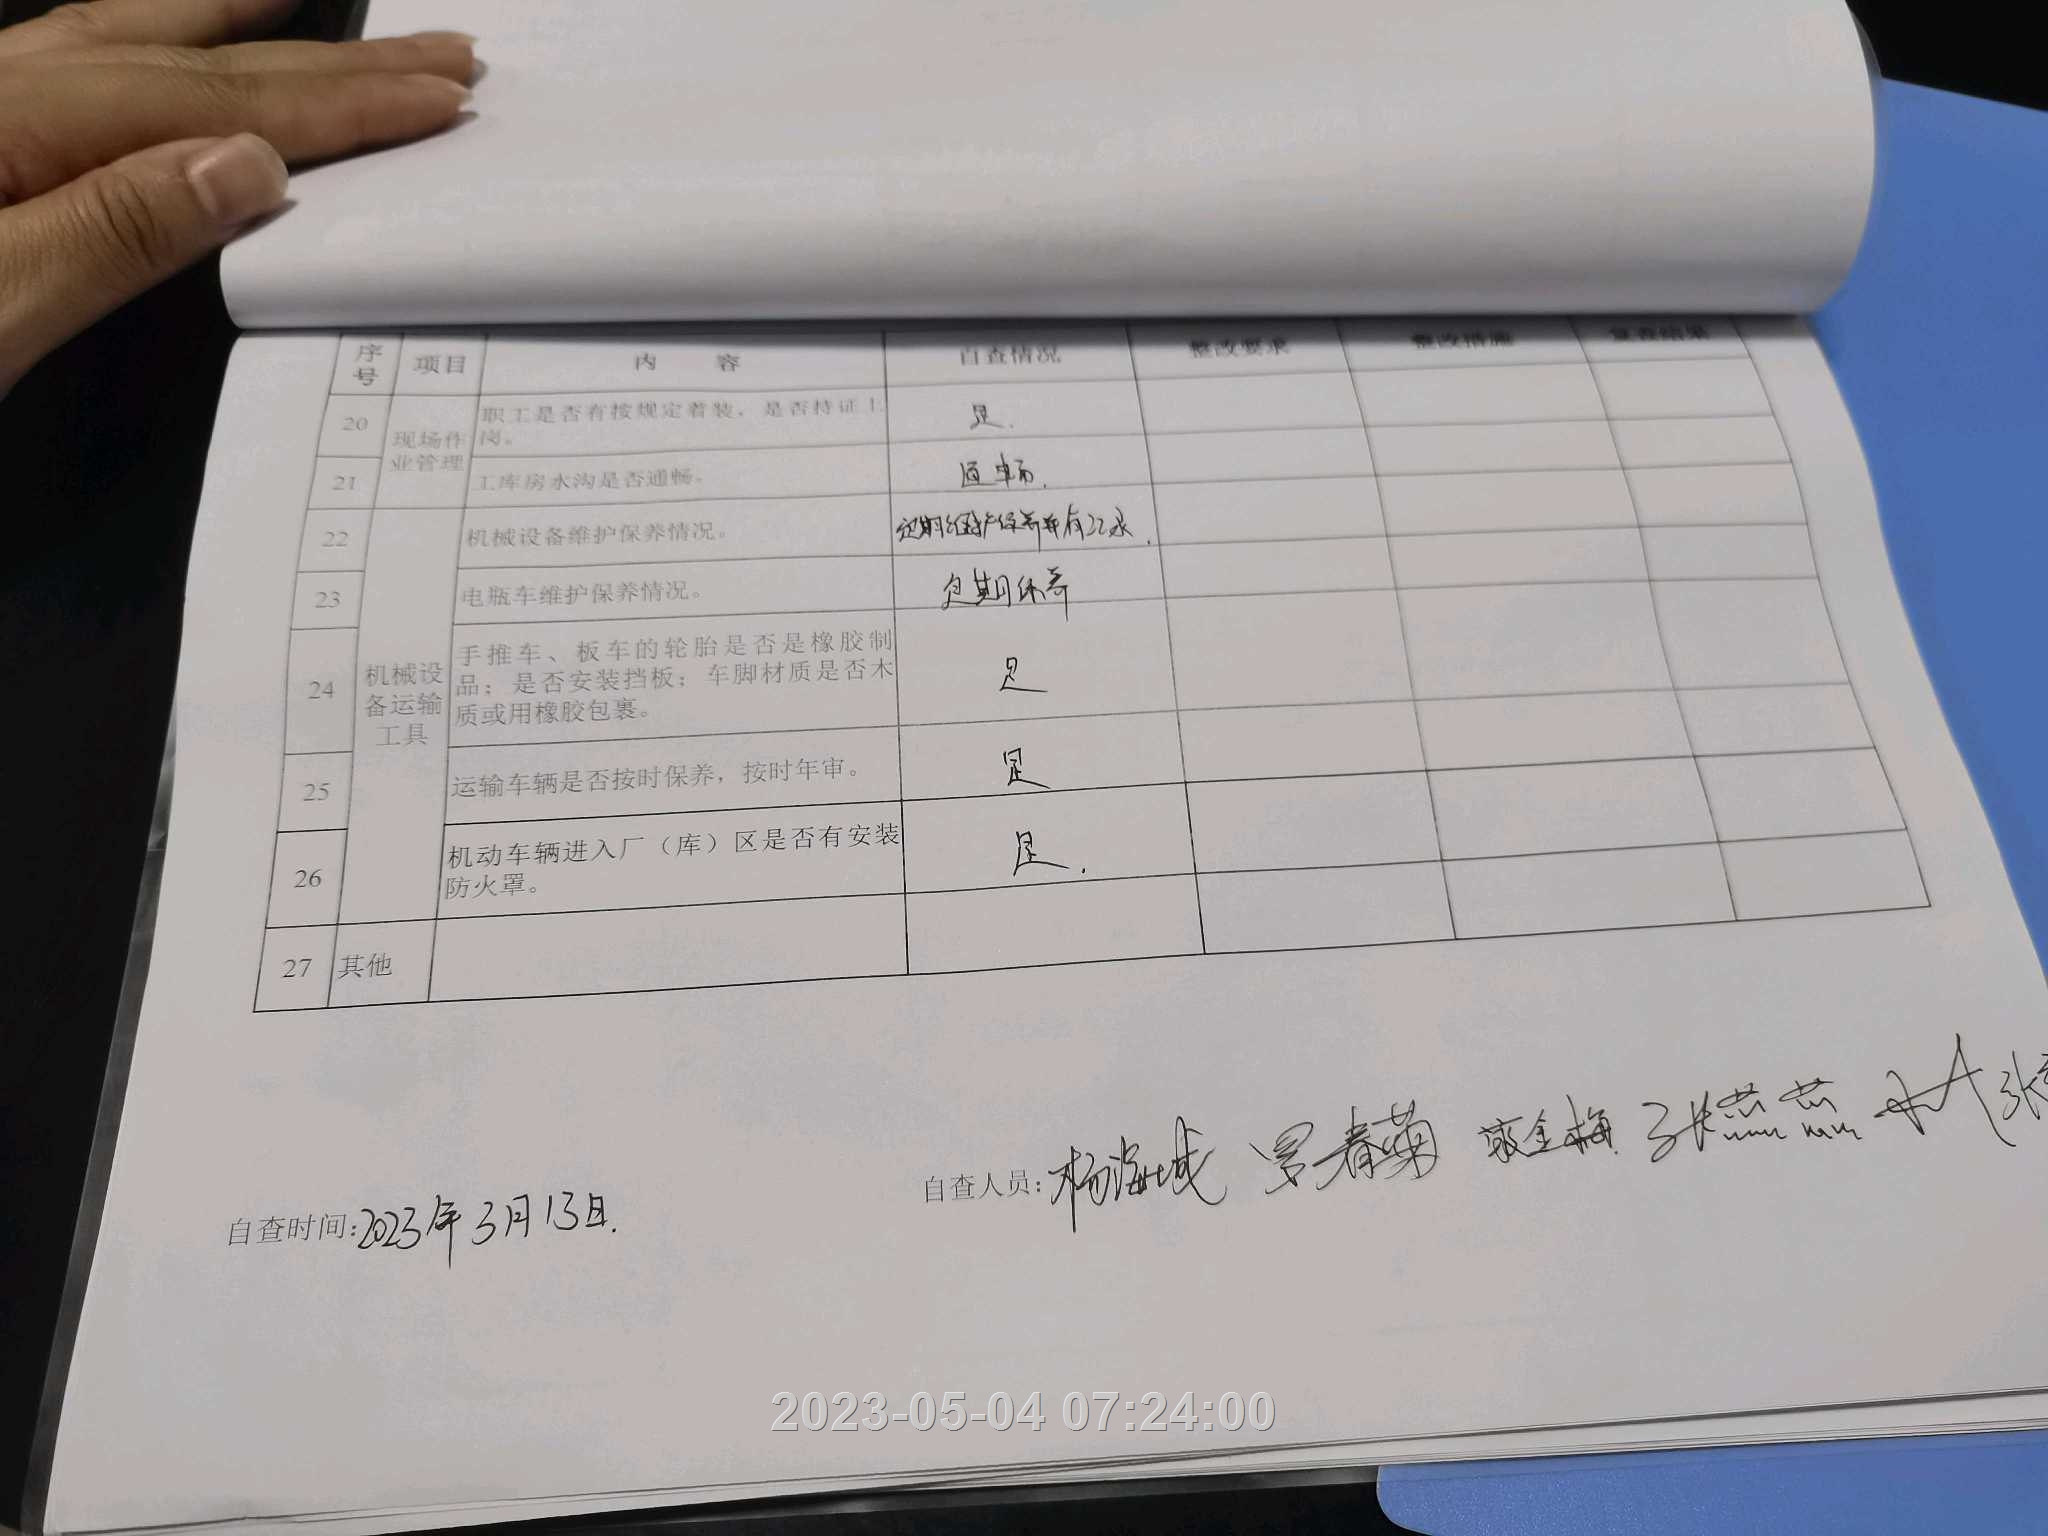 序号 项目 内 容 自查情况 整改要求 整改措施 复查结果
现场作业管理
20 职工是否有按规定着装，是否持证上岗。 是.
21 工库房水沟是否通畅。 通畅.
机械设备运输工具
22 机械设备维护保养情况。 定期维护保养并有记录.
23 电瓶车维护保养情况。 定期保养
24 手推车、板车的轮胎是否是橡胶制
品；是否安装挡板；车脚材质是否木
质或用橡胶包裹。 是
25 运输车辆是否按时保养，按时年审。 是
26 机动车辆进入厂（库）区是否有安装
防火罩。 是.
27 其他
自查人员: 杨海城 罗春菊 金梅 张燕燕 张
自查时间: 2023年3月13日.
2023-05-04 07:24:00